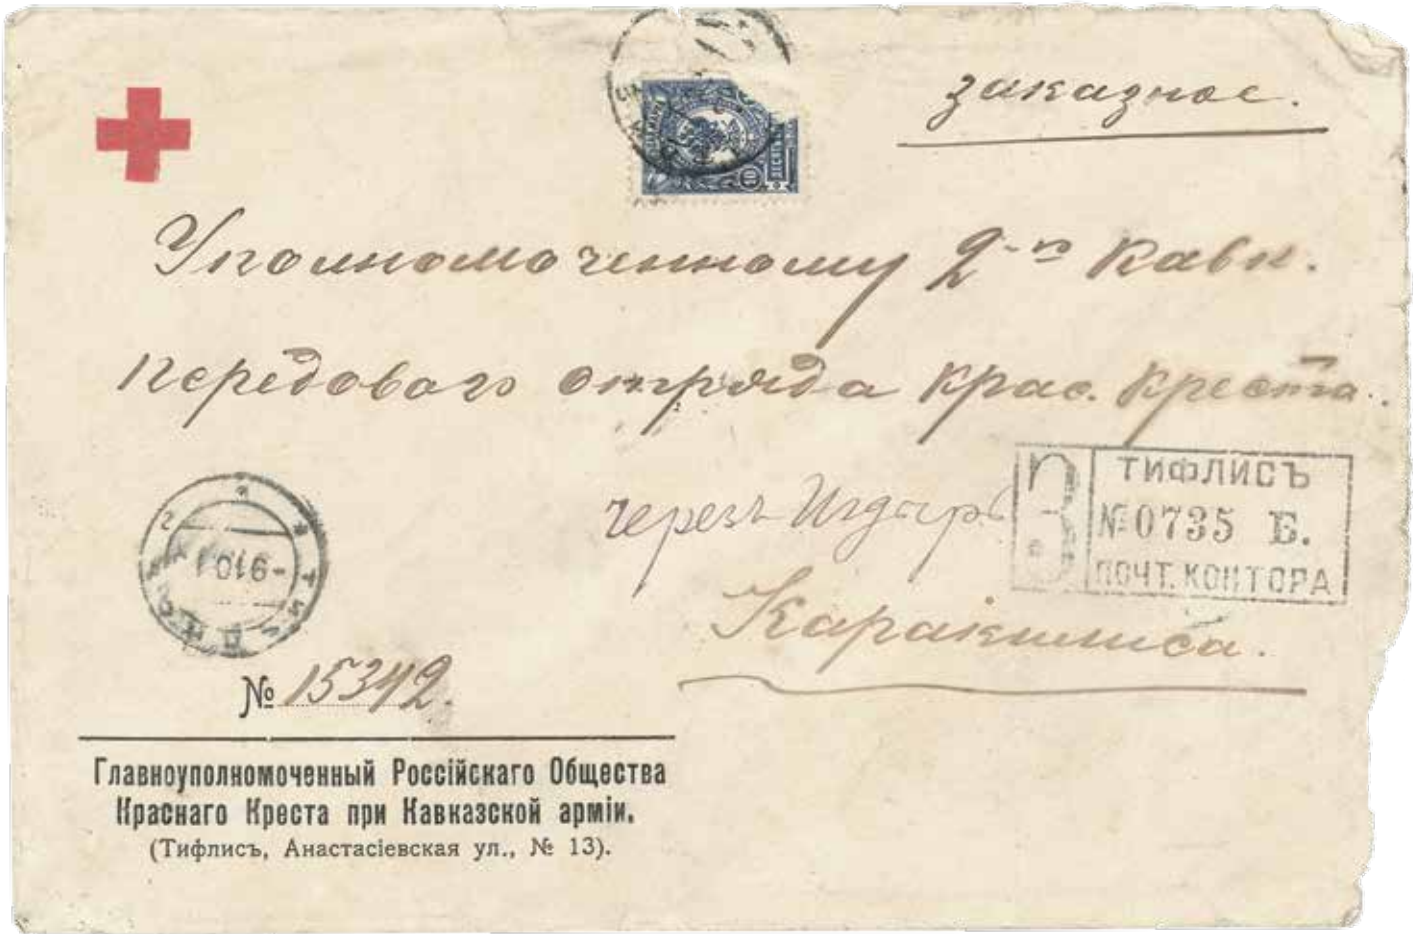 заказное.
Уполномоченному 2-го Кавк.
передового отряда Крас. Креста.
черезъ Игдырь
Каракилиса.
З
ТИФЛИСЪ
№ 0735 Б.
ПОЧТ. КОНТОРА
-9 10 1
№ 15342.
Главноуполномоченный Россійскаго Общества
Краснаго Креста при Кавказской арміи.
(Тифлисъ, Анастасіевская ул., № 13).